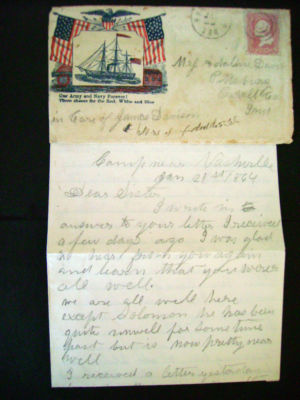 Our Army and Navy Forever!
Three cheers for the Red, White and Blue
Miss
in Care of James
Camp near Nashville
Jan 21st/864
Dear Sister
I write in
answer to your letter I received
a few days ago I was glad
to hear from you again
and learn that you were
all well.
we are all well here
except Solomon he has been
quite unwell for some time
past but is now pretty near
well
I received a letter yesterday